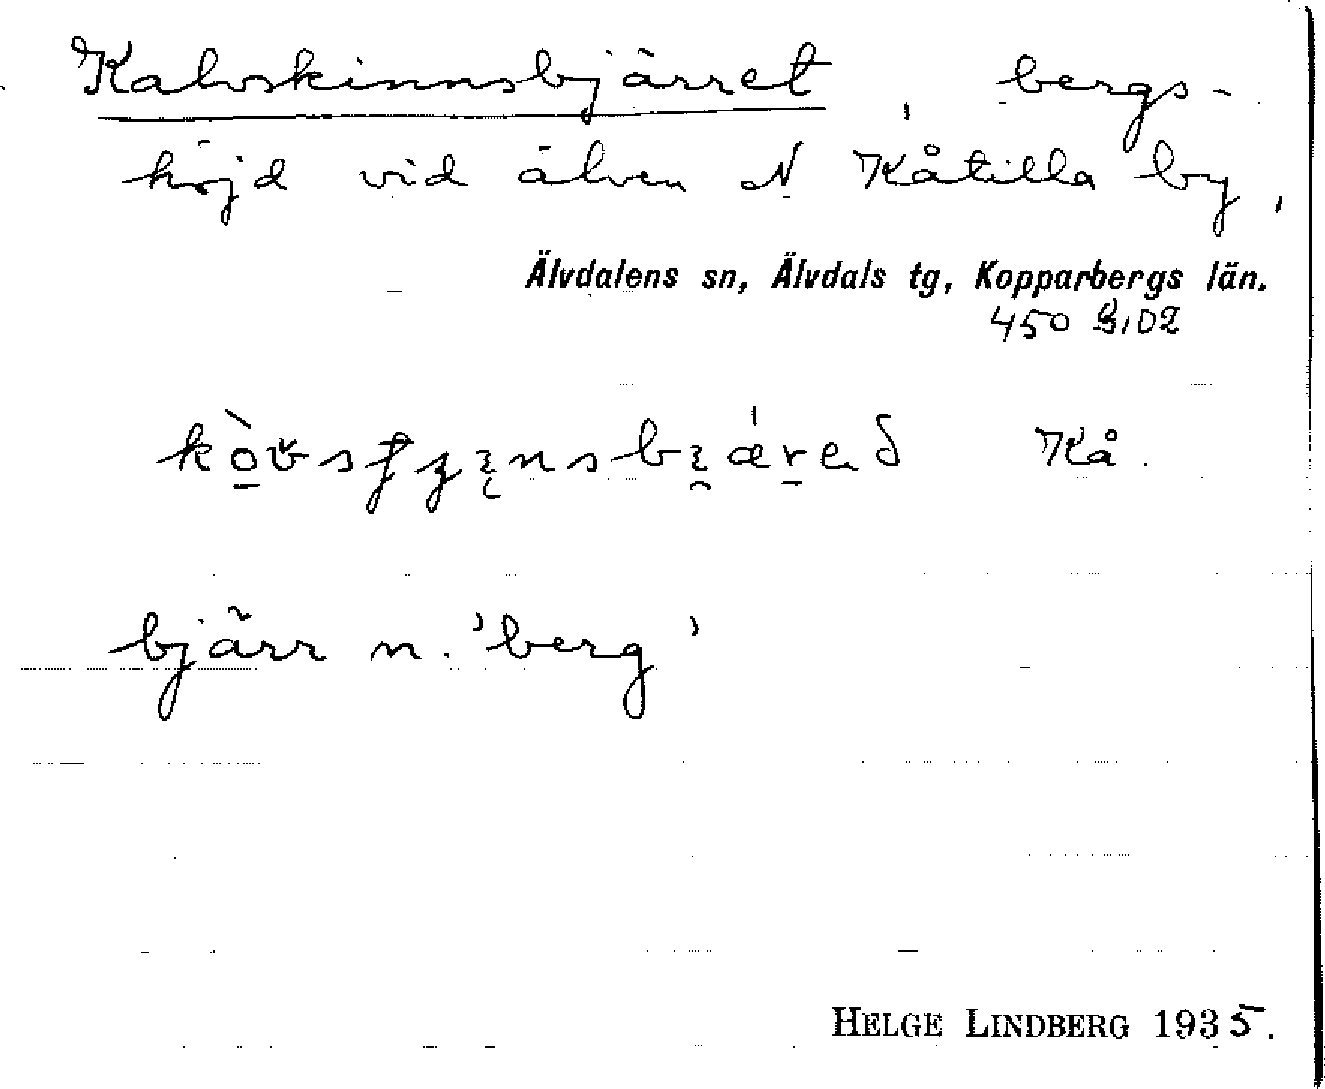 Kalvskinnsbjärret, bergs-
höjd vid älven N Kåtilla by,
Älvdalens sn, Älvdals tg, Kopparbergs län.
450
Kå.
bjärr n. 'berg'
HELGE LINDBERG 1935.